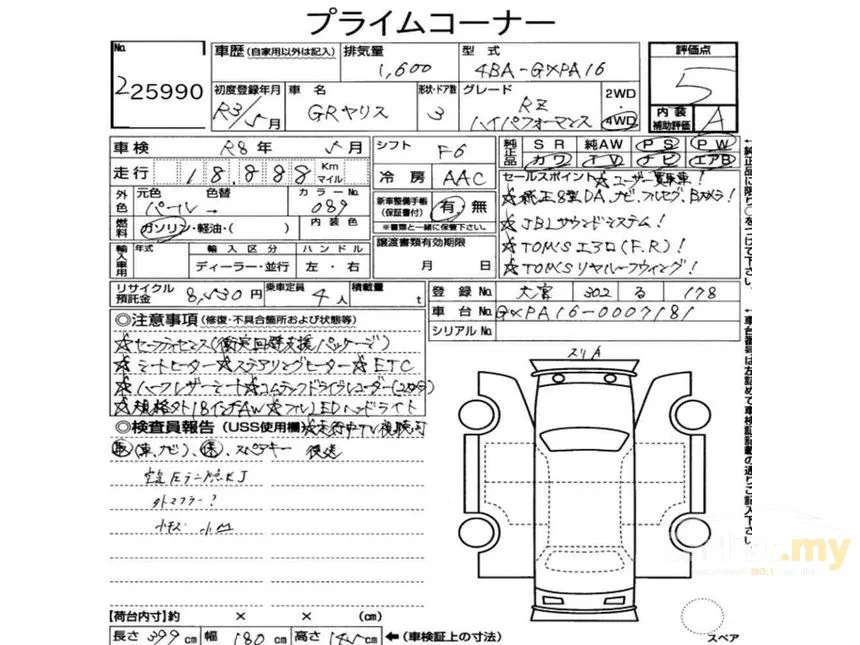 プライムコーナー
No. 225990
車歴(自家用以外は記入) 排気量 1,600 型式 4BA-GXPA16 評価点 5
初度登録年月 R3/5月 車名 GRヤリス 形状・ドア数 3 グレード RZ ハイパフォーマンス 2WD・4WD 内装補助評価 A
車検 R8年5月 シフト F6 純正品 SR 純AW PS PW
走行 18,888 Km マイル 冷房 AAC カワ TV ナビ エアB
外色 元色 パール 色替 → カラーNo. 089 新車整備手帳(保証書付) 有・無 ※書類と一緒に保管下さい。
セールスポイント ☆ユーザー買取車!
☆純正8型DA、ナビ、フルセグ、Bカメラ!
☆JBLサウンドシステム!
☆TOM'Sエアロ(F.R)!
☆TOM'Sリヤルーフウィング!
燃料 ガソリン・軽油・( ) 内装色
譲渡書類有効期限 月 日
輸入車用 年式 輸入区分 ディーラー・並行 ハンドル 左・右
リサイクル預託金 8,530円 乗車定員 4人 積載量 t
登録No. 大宮 302 る 178
車台No. GXPA16-0007181
シリアルNo.
◎注意事項(修復・不具合箇所および状態等)
☆セーフティセンス(衝突回避支援パッケージ)
☆シートヒーター☆ステアリングヒーター☆ETC
☆ハーフレザーシート☆コムテックドライブレコーダー
☆規格外18インチAW☆フルLEDヘッドライト
◎検査員報告(USS使用欄)☆走行中TV視聴可
取(車、ナビ)、保、スペアキー 後送
外マフラー?
小キズ 小凹
スリA
スペア
【荷台内寸】約 × × (cm)
長さ 399cm 幅 180cm 高さ 145cm ←(車検証上の寸法)
←純正品に限り○をつけて下さい。
←車台番号は左詰めで車検証記載の通りご記入下さい
.my
NO.1